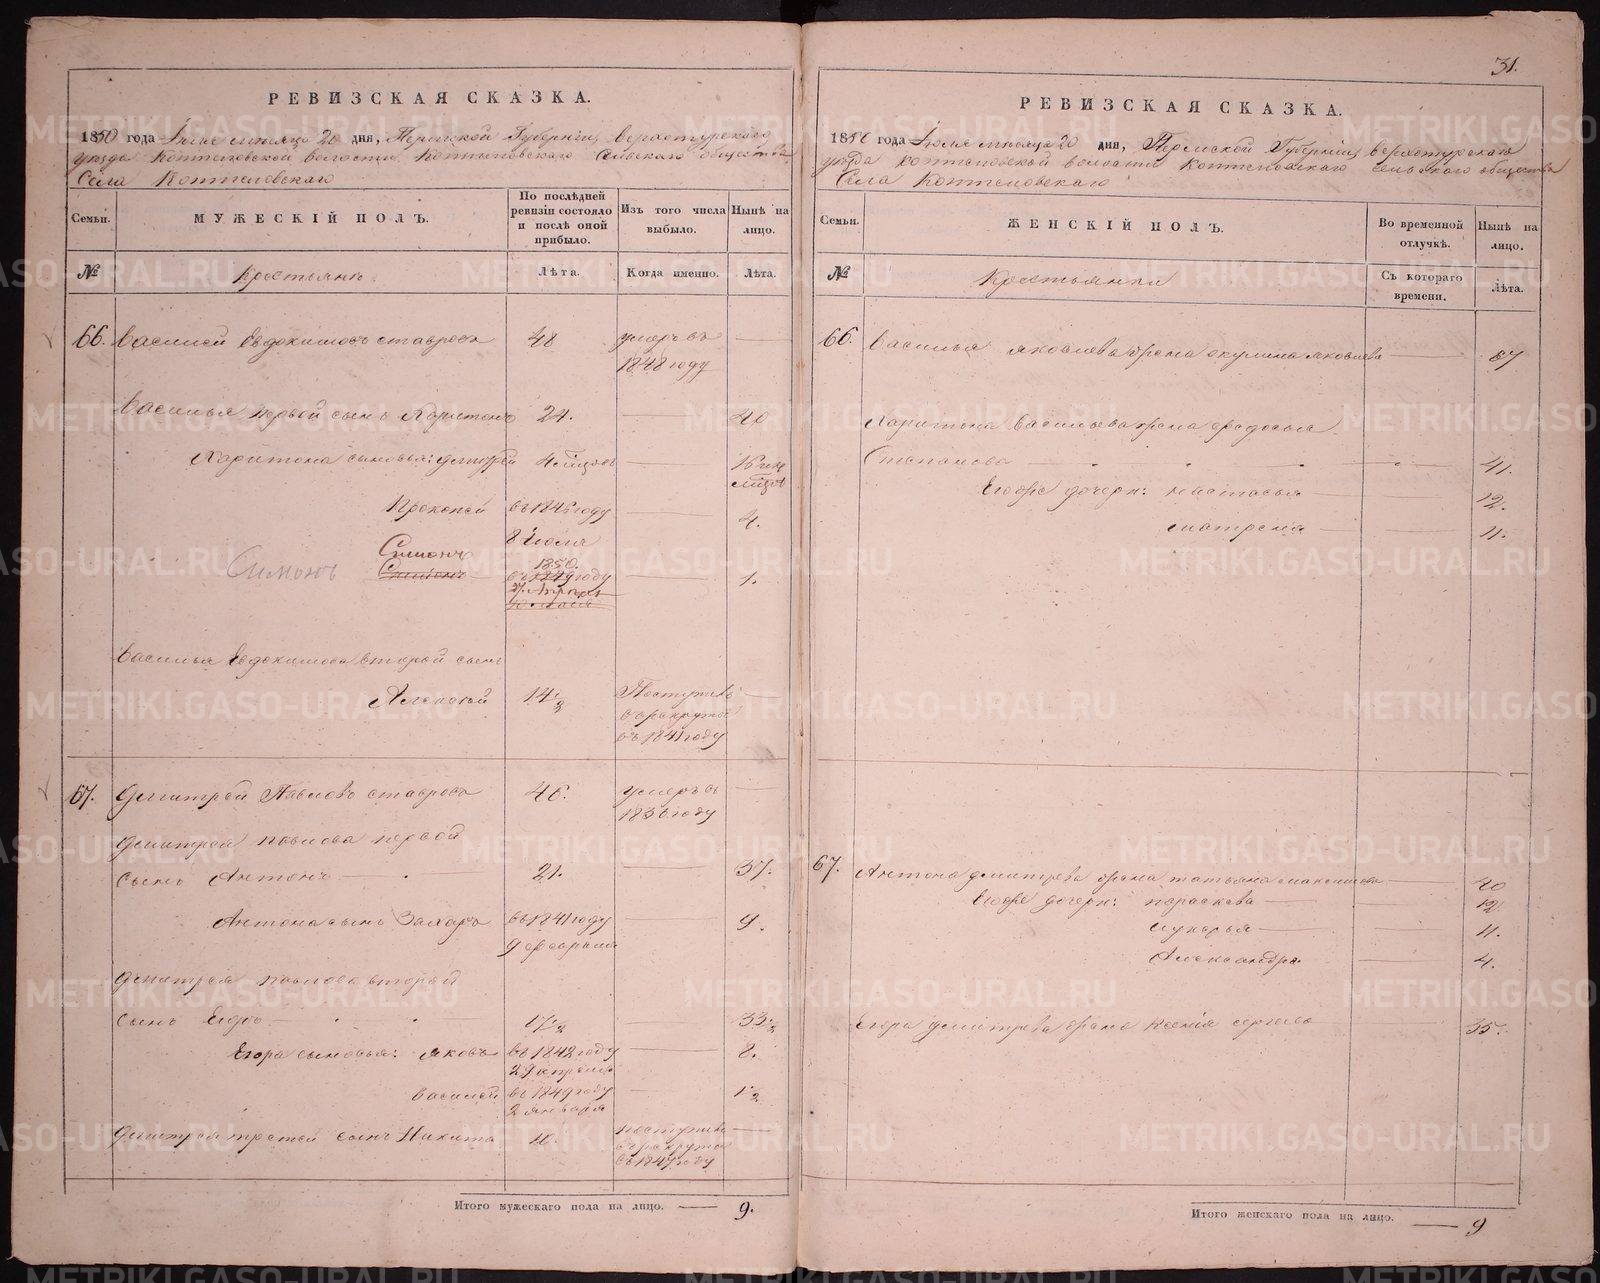 РЕВИЗСКАЯ СКАЗКА.
1850 года Іюня мѣсяца 20 дня, Пермской Губерніи, Верхотурскаго
уѣзда Коптеловской волости Коптеловскаго Сельскаго общества
Села Коптеловскаго
Семьи.
МУЖЕСКІЙ ПОЛЪ.
По послѣдней ревизіи состояло и послѣ оной прибыло.
Изъ того числа выбыло.
Нынѣ на лицо.
№
Крестьянъ
Лѣта.
Когда именно.
Лѣта.
66. Василей Евдокимовъ ставровъ 48 умеръ въ
1848 году
Василья первой сынъ Харитонъ 24. 40
Харитона сыновья: Дмитрей
Прокопей въ 1846 году 4.
8 Іюля
Симонъ
1850.
Симонъ въ 1849 году 1.
27. Апреля
Василья Евдокимова второй сынъ
Алексей 14 ½ Поступилъ
в рекруты
въ 1841 году
67. Дмитрей Павловъ ставровъ 46. умеръ въ
1836 году
Дмитрея павлова первой
сынъ Антонъ 21. 37.
Антона сынъ Захаръ въ 1841 году 9.
9 февраля
Дмитрея павлова второй
сынъ Егоръ 17 ½ 33 ½
Егора сыновья: яковъ въ 1842 году 8.
29 апреля
василей въ 1849 году 1 ½
2 января
Дмитрея третей сынъ Никита 10. поступилъ
в рекруты
въ 1847 году
Итого мужескаго пола на лицо. 9.
31.
РЕВИЗСКАЯ СКАЗКА.
1850 года Іюня мѣсяца 20 дня, Пермской Губерніи, верхотурскаго
уѣзда коптеловской волости Коптеловскаго сельскаго общества
Села Коптеловскаго
Семьи.
ЖЕНСКІЙ ПОЛЪ.
Во временной отлучкѣ.
Нынѣ на лицо.
№
Крестьянки
Съ котораго времени.
Лѣта.
66. Василья яковлева жена окулина яковлева 57
Харитона васильева жена федосья
Степанова 41.
Егожъ дочери: настасья 12.
матрена 11.
67. Антона дмитрева жена татьяна максимова 40
Егожъ дочери: параскева 12.
лукерья 11.
Александра 4.
Егора дмитрева жена ксенія сергеева 35.
Итого женскаго пола на лицо. 9
METRIKI.GASO-URAL.RU